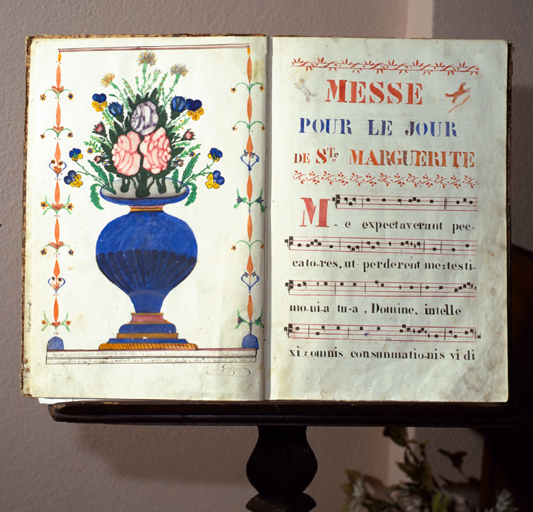 MESSE
POUR LE JOUR
DE Ste MARGUERITE
Me expectaverunt pec-
cato-res, ut perderent me: testi-
mo-ni-a tu-a, Domine, intelle
xi: omnis consummationis vi di